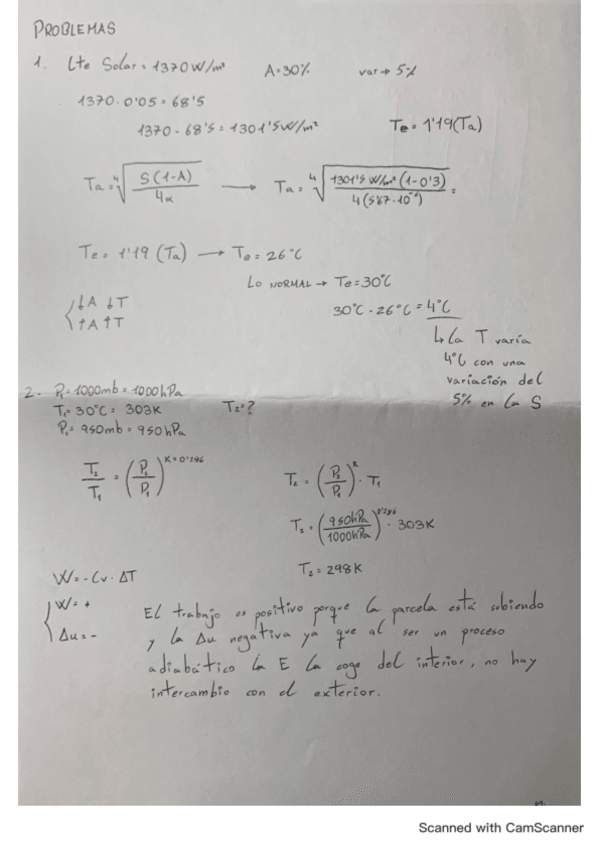 PROBLEMAS
1. Cte Solar = 1370 W/m² A = 30% var → 5%
1370 · 0'05 = 68'5
1370 - 68'5 = 1301'5 W/m² Te = 1'19 (Ta)
Ta = ⁴√(S(1-A)/4α) → Ta = ⁴√(1301'5 W/m² (1-0'3)/4(5'67·10⁻⁸)) =
Te = 1'19 (Ta) → Te = 26°C
Lo NORMAL → Te = 30°C
{ ↓A ↓T
↑A ↑T
30°C - 26°C = 4°C
↳ La T varía
4°C con una
variación del
5% en la S
2. P₁ = 1000mb = 1000hPa
T₁ = 30°C = 303K T₂ = ?
P₂ = 950mb = 950hPa
T₂/T₁ = (P₂/P₁)^K=0'286
T₂ = (P₂/P₁)^K · T₁
T₂ = (950hPa/1000hPa)^0'286 · 303K
T₂ = 298K
W = -Cv · ΔT
{ W = +
Δu = -
El trabajo es positivo porque la parcela está subiendo
y la Δu negativa ya que al ser un proceso
adiabático la E la coge del interior, no hay
intercambio con el exterior.
Scanned with CamScanner